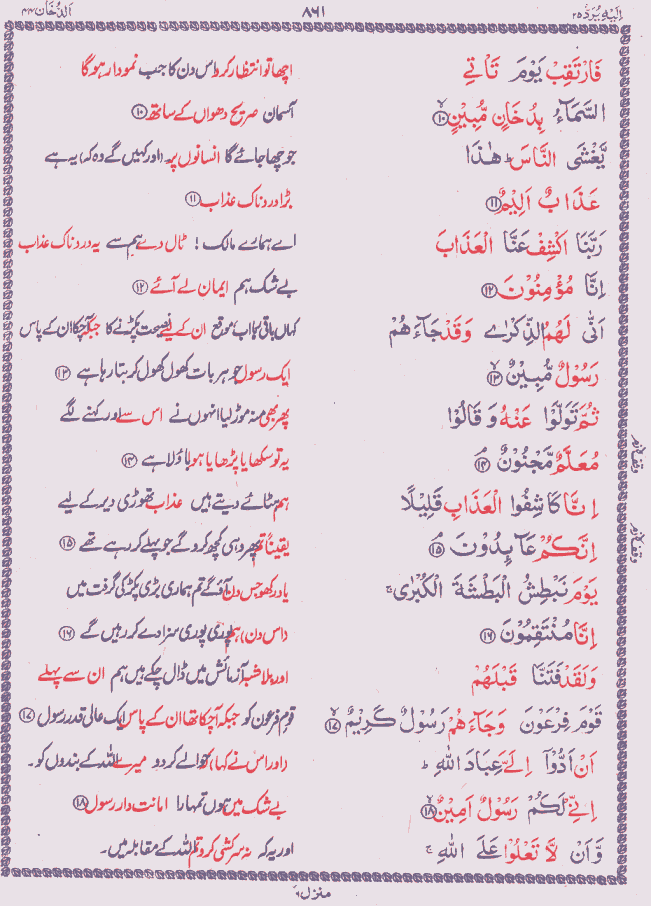 اِلَيْهِ يُرَدُّ ٢٥ ٨٦١ اَلدُّخَان ٤٤
فَارْتَقِبْ يَوْمَ تَاْتِي اچھا تو انتظار کرو اس دن کا جب نمودار ہوگا
السَّمَآءُ بِدُخَانٍ مُّبِيْنٍ ۙ‏﴿۱۰﴾ آسمان صریح دھواں کے ساتھ ﴿۱۰﴾
يَّغْشَى النَّاسَ ؕ هٰذَا جو چھا جائے گا انسانوں پر (اور کہیں گے وہ کہ) یہ ہے
عَذَابٌ اَلِيْمٌ ﴿۱۱﴾ بڑا دردناک عذاب ﴿۱۱﴾
رَبَّنَا اكْشِفْ عَنَّا الْعَذَابَ اے ہمارے مالک! ٹال دے ہم سے یہ دردناک عذاب
اِنَّا مُؤْمِنُوْنَ ﴿۱۲﴾ بے شک ہم ایمان لے آئے ﴿۱۲﴾
اَنّٰى لَهُمُ الذِّكْرٰى وَقَدْ جَآءَهُمْ کہاں باقی رہا اب موقع ان کے لیے نصیحت پکڑنے کا جبکہ آچکا ان کے پاس
رَسُوْلٌ مُّبِيْنٌ ۙ﴿۱۳﴾ ایک رسول جو ہر بات کھول کھول کر بتا رہا ہے ﴿۱۳﴾
ثُمَّ تَوَلَّوْا عَنْهُ وَ قَالُوْا پھر بھی منہ موڑ لیا انہوں نے اس سے اور کہنے لگے
مُعَلَّمٌ مَّجْنُوْنٌ ۘ﴿۱۴﴾ یہ تو سکھایا پڑھایا ہوا باؤلا ہے ﴿۱۴﴾
اِنَّا كَاشِفُوا الْعَذَابِ قَلِيْلًا ہم ہٹائے دیتے ہیں عذاب تھوڑی دیر کے لیے
اِنَّكُمْ عَآئِدُوْنَ ۘ﴿۱۵﴾ یقیناً تم پھر وہی کچھ کرو گے جو پہلے کر رہے تھے ﴿۱۵﴾
يَوْمَ نَبْطِشُ الْبَطْشَةَ الْكُبْرٰى ۚ یاد رکھو جس دن آؤ گے تم ہماری بڑی پکڑ کی گرفت میں
اِنَّا مُنْتَقِمُوْنَ ﴿۱۶﴾ (اس دن) ہم پوری پوری سزا دے کر رہیں گے ﴿۱۶﴾
وَلَقَدْ فَتَنَّا قَبْلَهُمْ اور بلاشبہ آزمائش میں ڈال چکے ہیں ہم ان سے پہلے
قَوْمَ فِرْعَوْنَ وَجَآءَهُمْ رَسُوْلٌ كَرِيْمٌ ۙ﴿۱۷﴾ قوم فرعون کو جبکہ آچکا تھا ان کے پاس ایک عالی قدر رسول ﴿۱۷﴾
اَنْ اَدُّوْٓا اِلَيَّ عِبَادَ اللّٰهِ ؕ (اور اس نے کہا) کہ حوالے کر دو میرے اللہ کے بندوں کو۔
اِنِّيْ لَكُمْ رَسُوْلٌ اَمِيْنٌ ۙ﴿۱۸﴾ بے شک میں ہوں تمہارا امانت دار رسول ﴿۱۸﴾
وَّ اَنْ لَّا تَعْلُوْا عَلَى اللّٰهِ ۚ اور یہ کہ نہ سرکشی کرو تم اللہ کے مقابلہ میں۔
منزل ٦